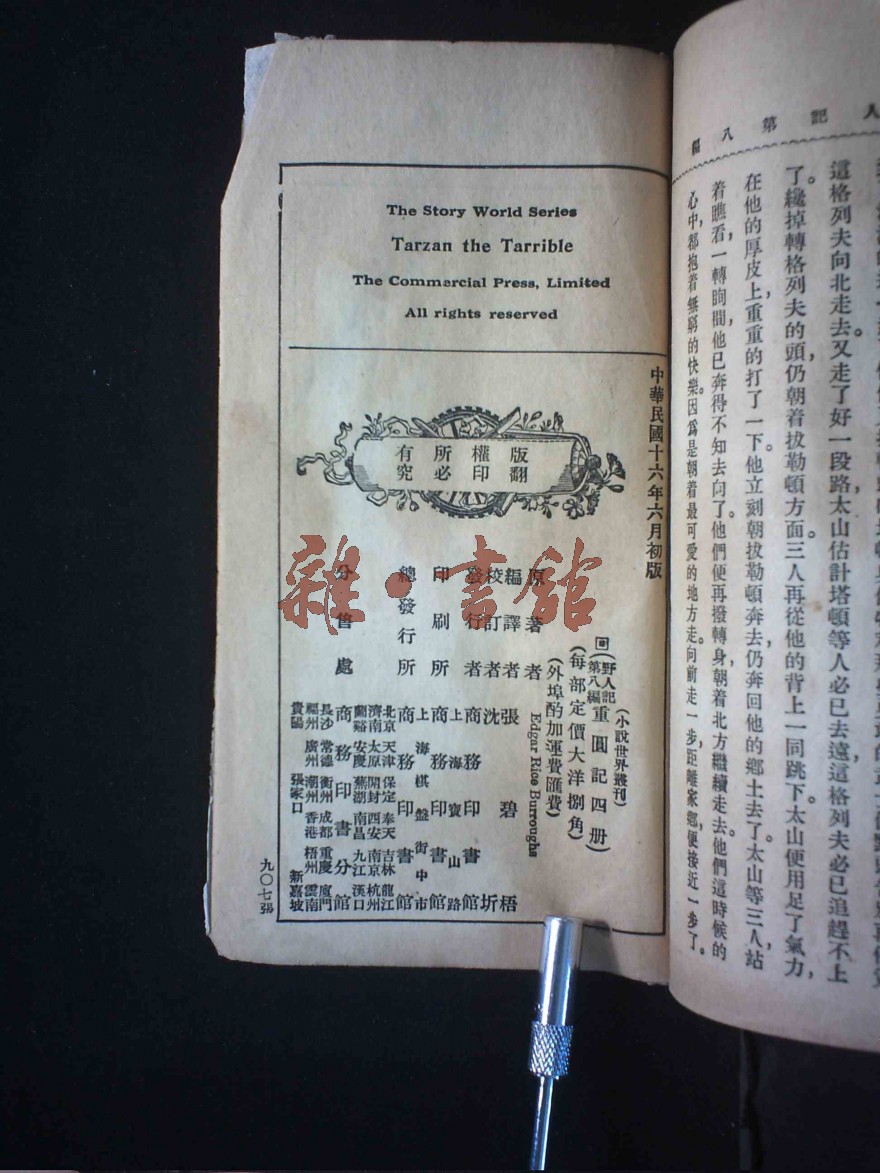 The Story World Series
Tarzan the Tarrible
The Commercial Press, Limited
All rights reserved
中華民國十六年六月初版
版權所有
翻印必究
(小說世界叢刊)
野人記
第八編
重圓記四册
(每部定價大洋捌角)
(外埠酌加運費匯費)
原著者 Edgar Rice Burroughs
編譯者 張碧梧
校訂者 沈圻
發行者 商務印書館
上海寶山路
印刷所 商務印書館
上海棋盤街中市
總發行所 商務印書館
分售處 商務印書分館
北京 天津 保定 奉天 吉林 龍江
濟南 太原 開封 西安 南京 杭州
蘭谿 安慶 蕪湖 南昌 九江 漢口
長沙 常德 衡州 成都 重慶 廈門
福州 廣州 潮州 香港 梧州 雲南
貴陽 張家口 新嘉坡
九〇七張
雜·書館
人記第八編
這格列夫向北走去。又走了好一段路,太山估計塔頓等人必已去遠,這格列夫必已追趕不上
了。纔掉轉格列夫的頭,仍朝着拔勒頓方面。三人再從他的背上一同跳下。太山便用足了氣力,
在他的厚皮上重重的打了一下。他立刻朝拔勒頓奔去,仍奔回他的鄉土去了。太山等三人站
着瞧看,一轉眴間,他已奔得不知去向了。他們便再撥轉身,朝着北方繼續走去。他們這時候的
心中,都抱着無窮的快樂。因爲是朝着最可愛的地方走。向前走一步,距離家鄉便接近一步了。